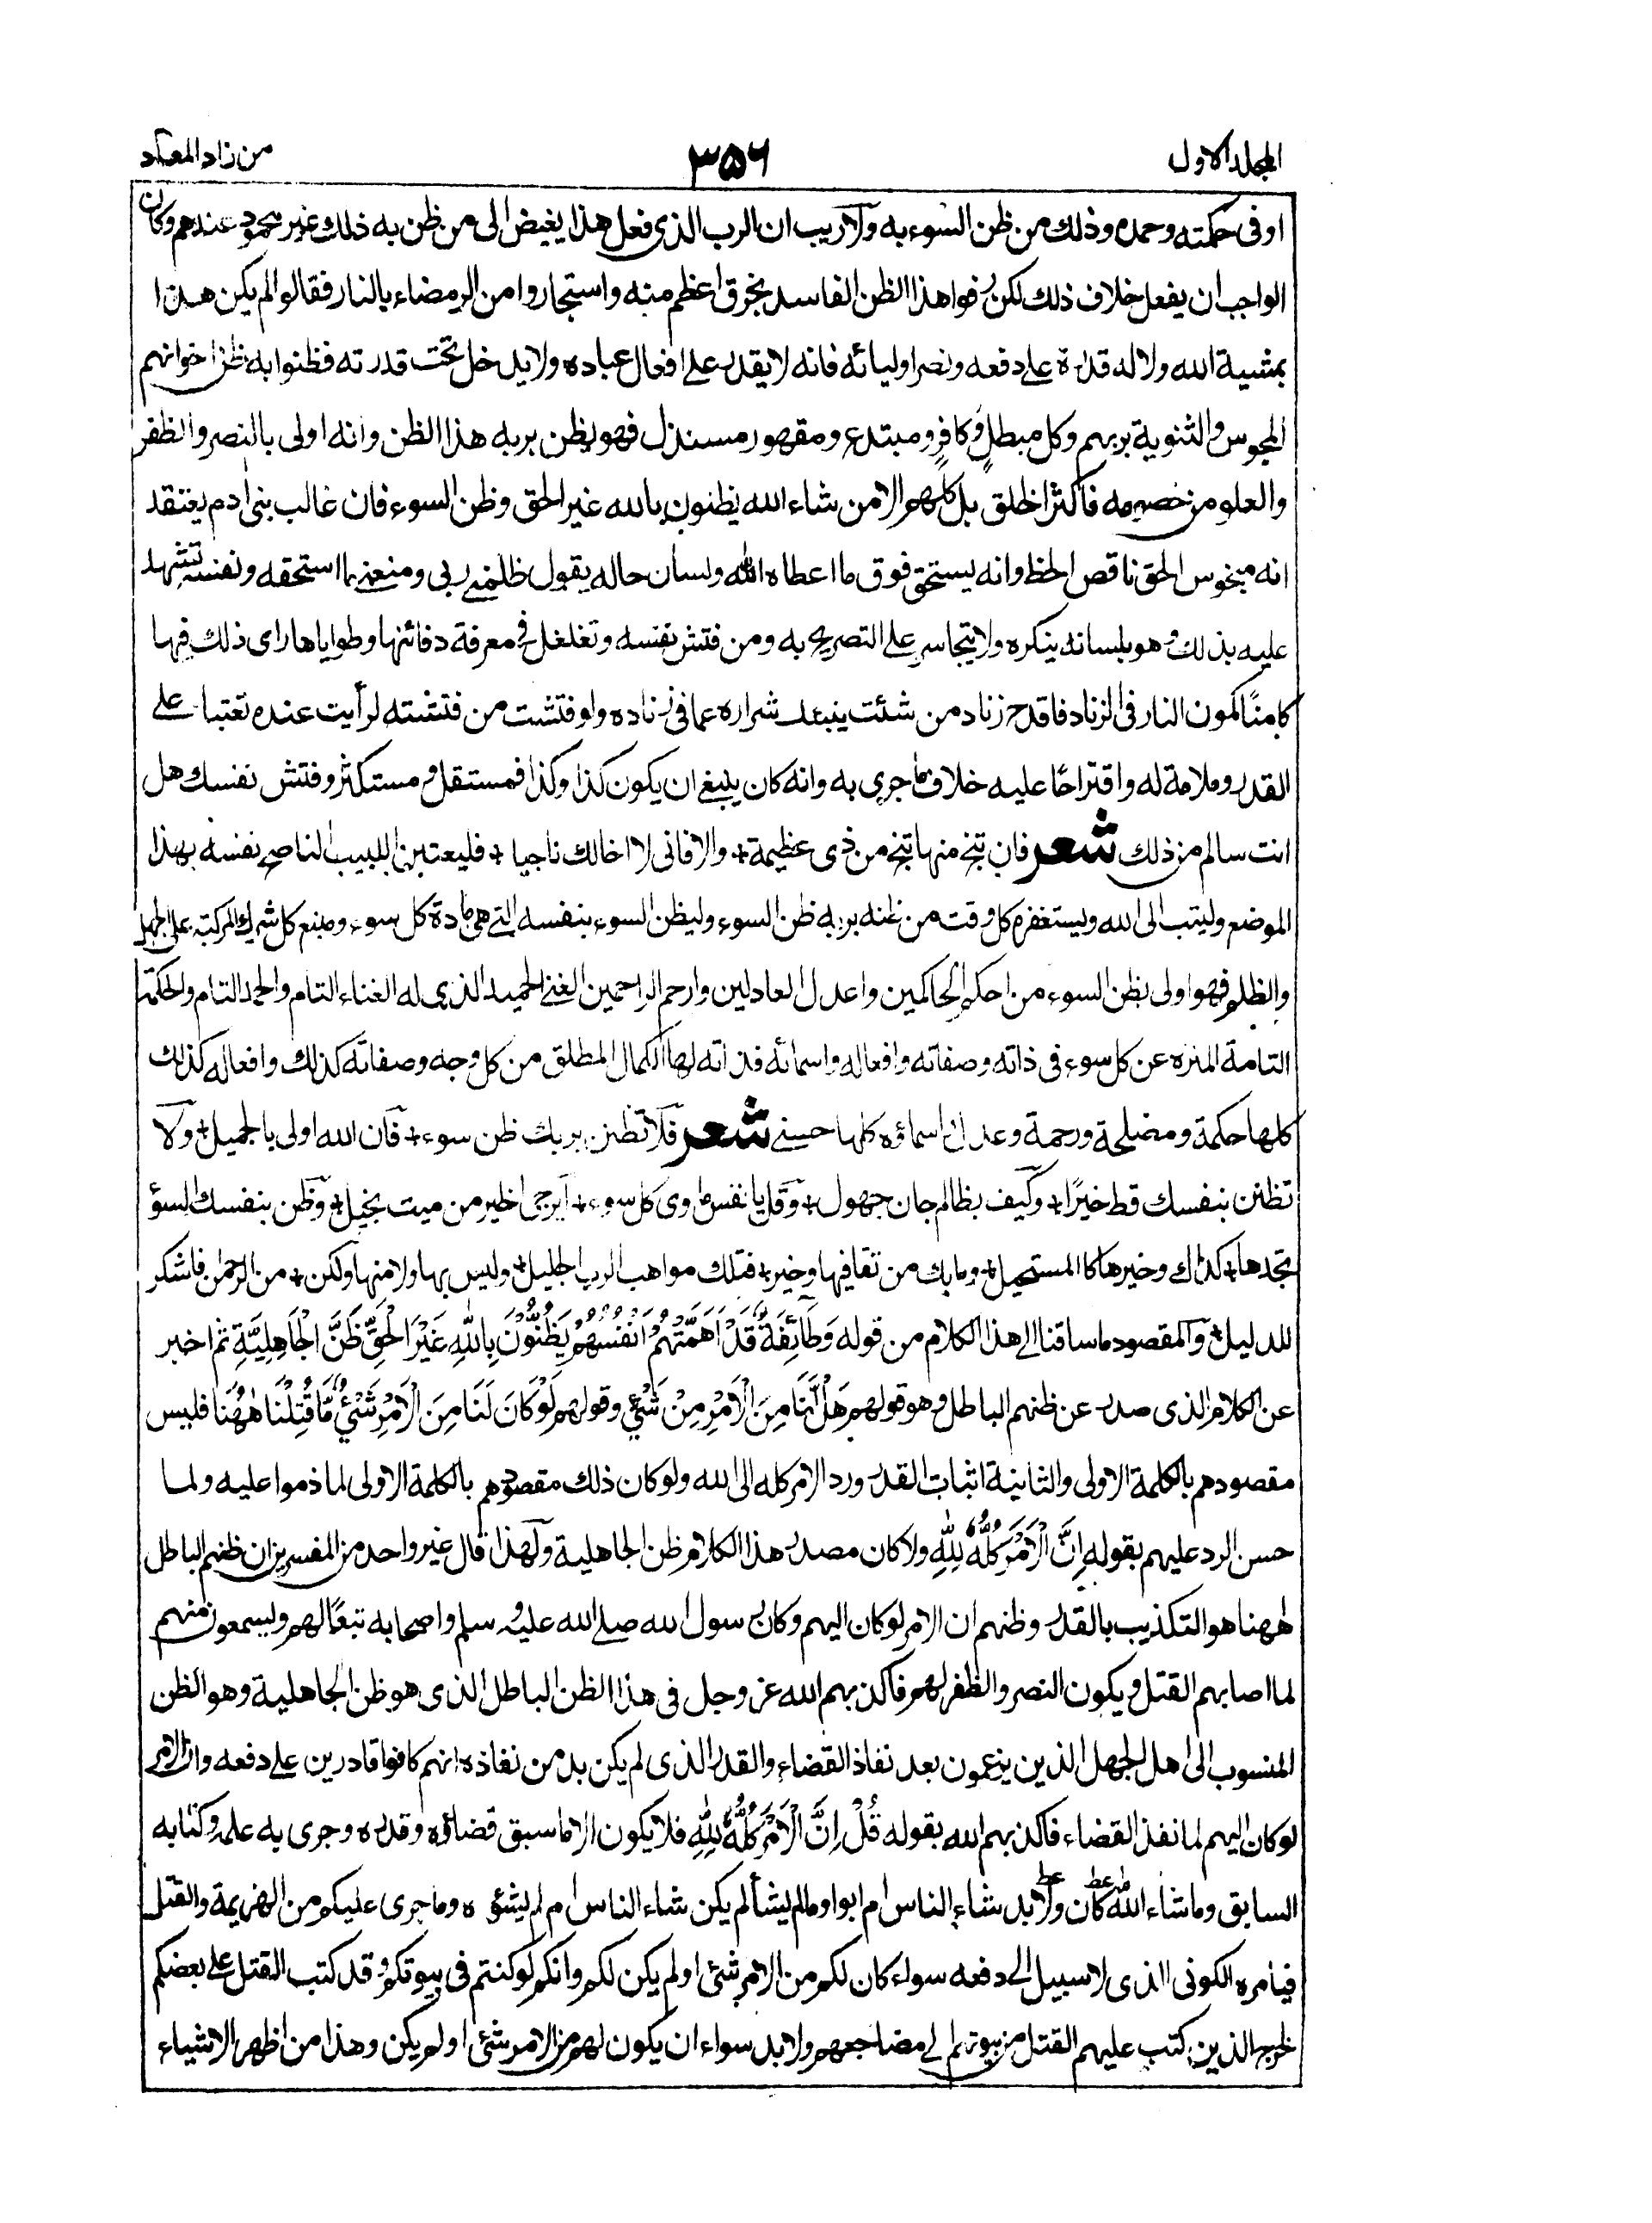 المجلد الاول
٣٥٦
من زاد المعاد
او فى حكمته وحمده وذلك من ظن السوء به ولا ريب ان الرب الذى فعل هذا بغيض الى من ظن به ذلك غير محمود عندهم وكان
الواجب ان يفعل خلاف ذلك لكن رفوا هذا الظن الفاسد بخرق اعظم منه واستجاروا من الرمضاء بالنار فقالوا لم يكن هذا
بمشية الله ولا له قدرة على دفعه ونصر اوليائه فانه لا يقدر على افعال عباده ولا يدخل تحت قدرته فظنوا به ظن اخوانهم
المجوس والثنوية بربهم وكل مبطل وكافر ومبتدع ومقهور مستذل فهو يظن بربه هذا الظن وانه اولى بالنصر والظفر
والعلو من خصومه فاكثر الخلق بل كلهم الا من شاء الله يظنون بالله غير الحق وظن السوء فان غالب بنى ادم يعتقد
انه مبخوس الحق ناقص الحظ وانه يستحق فوق ما اعطاه الله ولسان حاله يقول ظلمنى ربى ومنعنى ما استحقه ونفسه تشهد
عليه بذلك وهو بلسانه ينكره ولا يتجاسر على التصريح به ومن فتش نفسه وتغلغل فى معرفة دفائنها وطواياها راى ذلك فيها
كامنًا كمون النار فى الزناد فاقدح زناد من شئت ينبئك شراره عما فى زناده ولو فتشت من فتشته لرأيت عنده تعتبا على
القدر وملامة له واقتراحًا عليه خلاف ما جرى به وانه كان ينبغى ان يكون كذا وكذا فمستقل ومستكثر وفتش نفسك هل
انت سالم من ذلك شعر فان تنج منها تنج من ذى عظيمة + والا فانى لا اخالك ناجيا + فليعتبن اللبيب الناصح نفسه بهذا
الموضع وليتب الى الله وليستغفره كل وقت من ظنه بربه ظن السوء وليظن السوء بنفسه التى هى مادة كل سوء ومنبع كل شر المركبة على الجهل
والظلم فهو اولى بظن السوء من احكم الحاكمين واعدل العادلين وارحم الراحمين الغنى الحميد الذى له الغناء التام والحمد التام والحكمة
التامة المنزه عن كل سوء فى ذاته وصفاته وافعاله واسمائه فذاته لها الكمال المطلق من كل وجه وصفاته كذلك وافعاله كذلك
كلها حكمة ومصلحة ورحمة وعدل اسماؤه كلها حسنى شعر فلا تظنن بربك ظن سوء + فان الله اولى بالجميل + ولا
تظنن بنفسك قط خيرًا + وكيف بظالم جان جهول + وقل يا نفس ماوى كل سوء + ايرجى الخير من ميت بخيل + وظن بنفسك السؤ
تجدها + كذاك وخيرها كالمستحيل + وما بك من تقا فيها وخير + فتلك مواهب الرب الجليل + وليس بها ولا منها ولكن + من الرحمن فاشكر
للدليل + والمقصود ما ساقنا الى هذا الكلام من قوله وَطَآئِفَةٌ قَدْ اَهَمَّتْهُمْ اَنْفُسُهُمْ يَظُنُّوْنَ بِاللّٰهِ غَيْرَ الْحَقِّ ظَنَّ الْجَاهِلِيَّةِ ثم اخبر
عن الكلام الذى صدر عن ظنهم الباطل وهو قولهم هَلْ لَّنَا مِنَ الْاَمْرِ مِنْ شَىْءٍ وقولهم لَوْ كَانَ لَنَا مِنَ الْاَمْرِ شَىْءٌ مَّا قُتِلْنَا هٰهُنَا فليس
مقصودهم بالكلمة الاولى والثانية اثبات القدر ورد الامر كله الى الله ولو كان ذلك مقصودهم بالكلمة الاولى لما ذموا عليه ولما
حسن الرد عليهم بقوله اِنَّ الْاَمْرَ كُلَّهٗ لِلّٰهِ ولا كان مصدر هذا الكلام ظن الجاهلية ولهذا قال غير واحد من المفسرين ان ظنهم الباطل
ههنا هو التكذيب بالقدر وظنهم ان الامر لو كان اليهم وكان رسول الله صلى الله عليه وسلم واصحابه تبعًا لهم ويسمعون منهم
لما اصابهم القتل ويكون النصر والظفر لهم فاكذبهم الله عز وجل فى هذا الظن الباطل الذى هو ظن الجاهلية وهو الظن
المنسوب الى اهل الجهل الذين يزعمون بعد نفاذ القضاء والقدر الذى لم يكن بد من نفاذه انهم كانوا قادرين على دفعه وان الامر
لو كان اليهم لما نفذ القضاء فاكذبهم الله بقوله قُلْ اِنَّ الْاَمْرَ كُلَّهٗ لِلّٰهِ فلا يكون الا ما سبق قضاؤه وقدره وجرى به علمه وكتابه
السابق وما شاء الله كان ولا بد شاء الناس ام ابوا وما لم يشأ لم يكن شاء الناس ام لم يشؤه وما جرى عليكم من الهزيمة والقتل
فبامره الكونى الذى لا سبيل الى دفعه سواء كان لكم من الامر شئ او لم يكن لكم وانكم لو كنتم فى بيوتكم وقد كتب القتل على بعضكم
لخرج الذين كتب عليهم القتل من بيوتهم الى مضاجعهم ولا بد سواء ان يكون لهم من الامر شئ او لم يكن وهذا من اظهر الاشياء